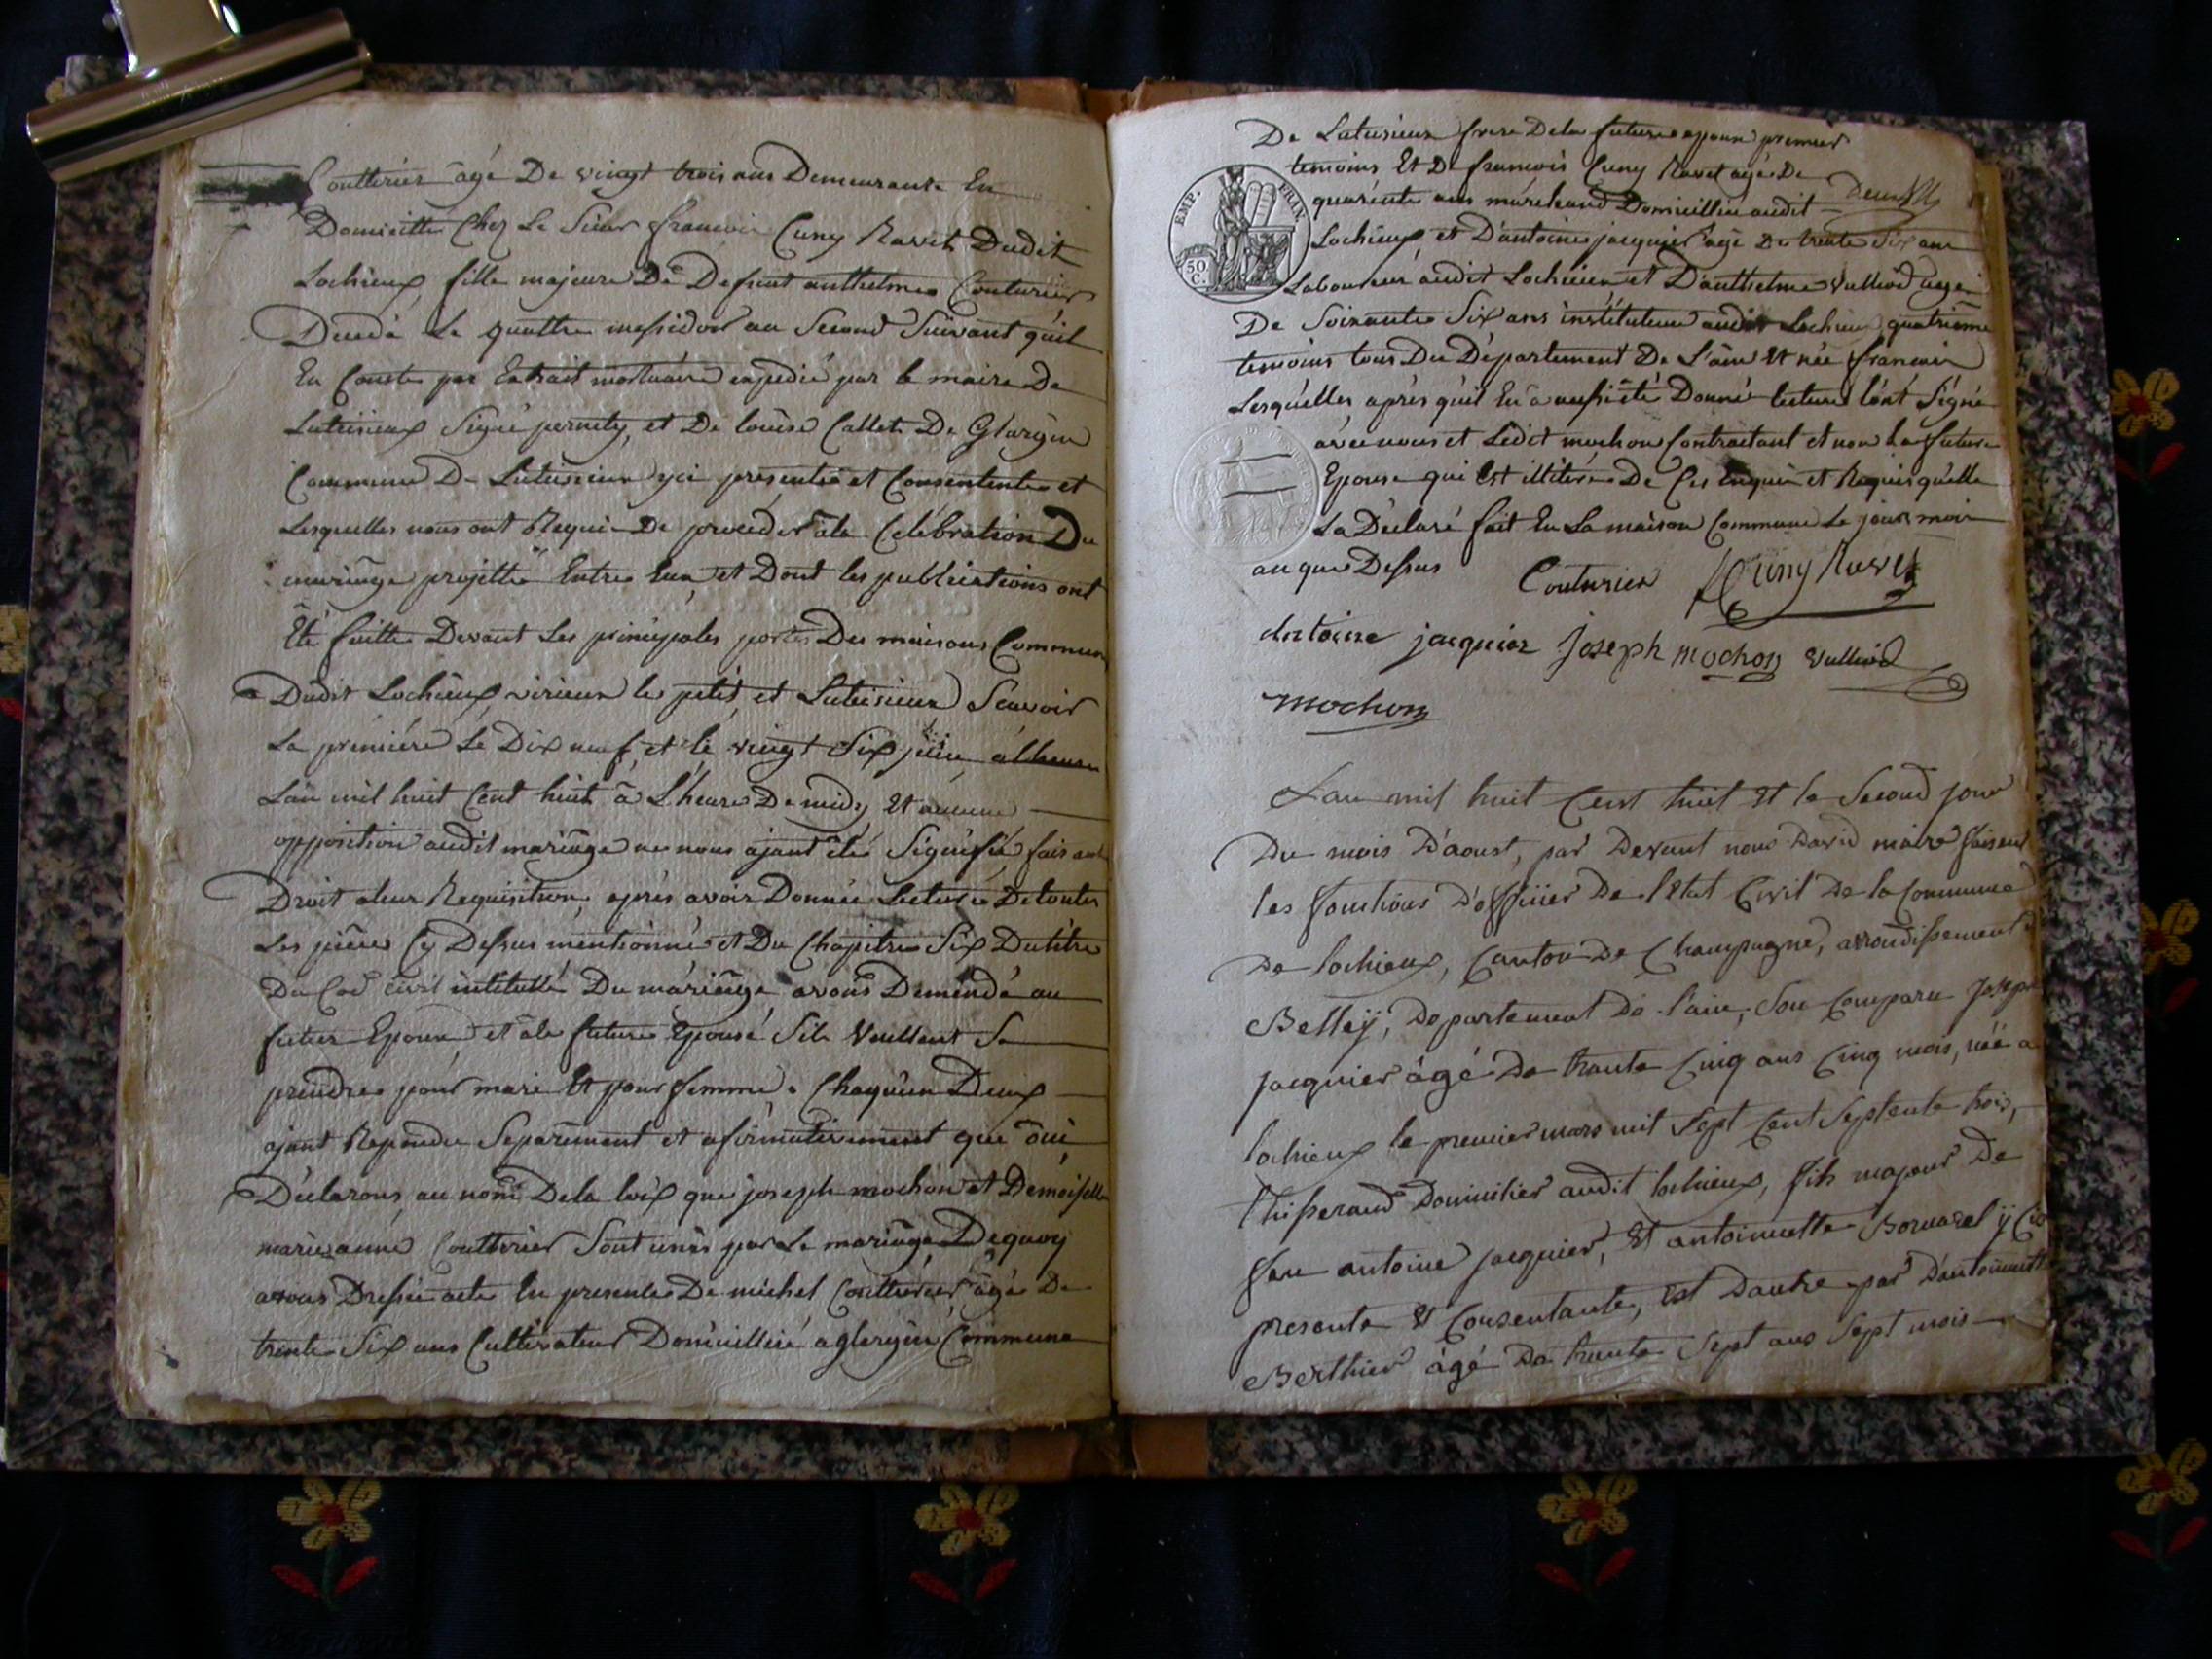 Coutterier âgé De vingt trois ans Demeurante En
Domicille Chez Le Sieur francois Cuny Ravet Dudit
Lochieux, fille majeure De Defunt anthelme Couturier
Decedé Le quattre messidor an Second Suivant quil
En Conste par Extrait mortuaire expedié par le maire De
Luteisieux Signé pernety, et De louise Callet De Glargin
Commune De Luteisieux yci presente et Consentente et
Lesquelles nous ont Requi De proceder àla Celébration Du
mariage projetté Entre Eux et Dont les publications ont
Eté faittes Devant Les principales portes Des maisons Commun
Dudit Lochieux virieux le petit et Luteisieux Scavoir
La premiére Le Dix neuf, et le vingt Six juin
Lan mil huit Cent huit à L'heure De midy Et aucune
opposition audit mariage ne nous ajant été Signifié fais ant
Droit aleur Requisition, aprés avoir Donnée Lecture De toutes
Les piéces Cy Dessus mentionné et Du Chapitre Six Dutitre
Du Cod civil intitullé Du mariage avons Demendé au
futur Epoux et àla future Epouse Sils Veullent Se
prendre pour mari Et pour femme Chaqu'un Deux
ajant Repondu Séparément et afirmativement que oui
Déclarons au nom Dela loix que joseph mochon et Demoiselle
marie anne Coutterier Sont unis par Le mariage De quoy
avons Dressé acte En presente De michel Coutterier âgé De
trente Six ans Cultivateur Domicillié a glargin Commune
De Luteisieux frere Dela future epoux premier
temoins Et De francois Cuny Ravet agé De
quarente ans marchand Domicillié audit
Lochieux et D'antoine jacquier agé De trente Six ans
Laboureur audit Lochieux et D'anthelme Vulliod agé
De Soixante Six ans instituteur audit Lochieux quatriéme
temoins tous Du Département De L'ain Et née francais
Lesquelles aprés quil En a aussi été Donné lecture l'ont Signé
avec nous et Ledit mochon Contractant et non La future
Epouse qui Est illitéré De Ces Enquis et Requis qu'elle
La Déclaré fait En La maison Commune Le jour moi
an que Dessus Couturier Cuny Ravet
antoine jacquier Joseph mochon Vulliod
mochon
EMP. FRAN.
50 C.
L'an mil huit Cent huit Et le Second jour
Du mois D'aoust, par Devant nous David maire faisant
les fonctions D'officier De l'Etat Civil De la Commune
De lochieux, Canton De Champagne, arrondissement
Belleÿ, Departement De l'ain, Son Comparu Joseph
jacquier âgé De trante Cinq ans Cinq mois, néé a
lochieux le premier mars mil Sept Cent Septente trois,
thisserand Domicilier audit lochieux, fils majeur De
feu antoine jacquier, Et antoinette Bornarel ÿ Ci
presente Et Consentante, Est Dautre par D'antoinette
Berthier âgé De trente Sept ans Sept mois